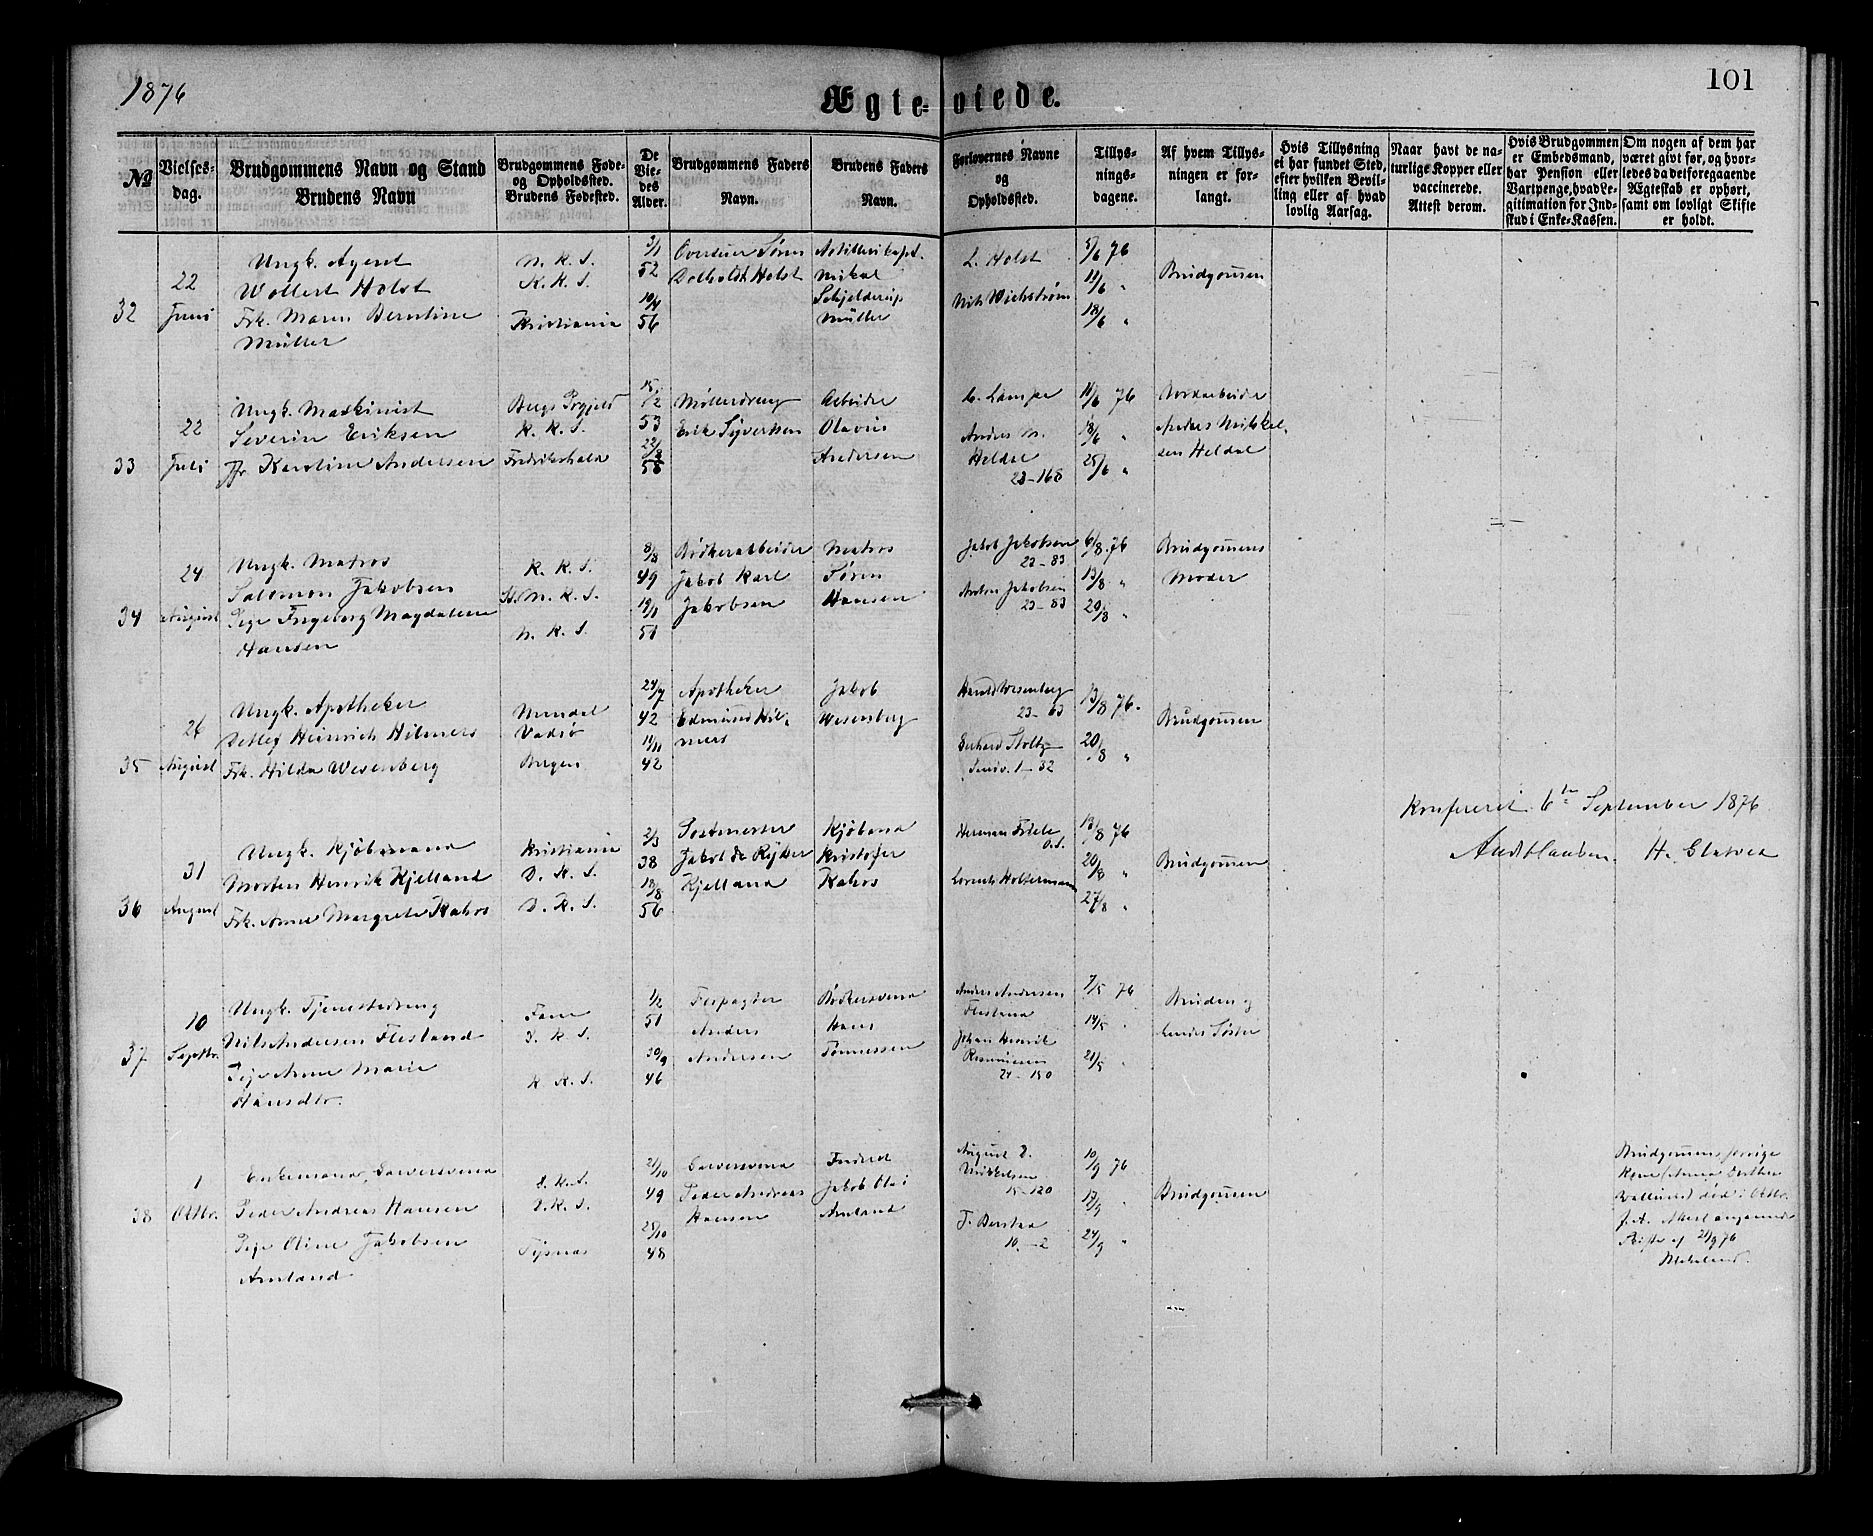 1876
Ægte-
viede.
101
No
Vielses-
dag.
Brudgommens Navn og Stand
Brudens Navn
Brudgommens Føde-
og Opholdssted.
Brudens Fødested.
De
Vie-
des
Alder.
Brudgommens Faders
Navn.
Brudens Faders
Navn.
Forlovernes Navne
og
Opholdssted.
Tillys-
nings-
dagene.
Af hvem Tillys-
ningen er for-
langt.
Hvis Tillysning
ei har fundet Sted,
efter hvilken Bevil-
ling eller af hvad
lovlig Aarsag.
Naar havt de na-
turlige Kopper eller
vaccinerede.
Attest derom.
Hvis Brudgommen
er Embedsmand,
har Pension eller
Vartpenge, hvad Le-
gitimation for Ind-
skud i Enke-Kassen.
Om nogen af dem har
været givt før, og hvor-
ledes da det foregaaende
Ægteskab er ophørt,
samt om lovligt Skifte
er holdt.
32
22
Juni
Ungk. Agent
Wollert Holst
Frk. Maren Berntine
Müller
N. K. S.
K. K. S.
Kristiania
3/1
52
10/4
56
Søren
Holst
Artillerikapt.
Mikal
Schjelderup
Müller
L. Holst
Nils Wichstrøm
5/6 76
11/6 "
18/6 "
Brudgommen
33
22
Juli
Ungk. Maskinist
Severin Eriksen
Jfr. Karoline Andersen
Bergs Prgjeld
K. K. S.
Fredrikshald
15/2
53
22/8
58
Møllerdreng
Erik Syvertsen
Arbeider
Olavus
Andersen
C. Lampe
Anders M.
Heldal
23-168
11/6 76
18/6 "
25/6 "
Anders Mikkel-
sen Heldal
34
24
August
Ungk. Matros
Salomon Jakobsen
Pige Ingeborg Magdalene
Hansen
K. K. S.
St. M. K. S.
N. K. S.
8/8
49
19/11
51
Bødkerarbeider
Jakob Karl
Jakobsen
Matros
Søren
Hansen
Jakob Jakobsen
23-83
Anton Jakobsen
23-83
6/8 76
13/8 "
20/8 "
Brudgommens
Moder
35
26
August
Ungk. Apotheker
Detlef Heinrich Hilmers
Frk. Hilda Wesenberg
Mandal
Vadsø
Bergen
24/7
42
11/11
42
Apotheker
Edmund Hil-
mers
Jakob
Wesenberg
Harald Wesenberg
23-63
Gerhard Stoltz
1-32
13/8 76.
20/8 "
Brudgommen
Konfereret 6te September 1876
H. Glatved
36
31
August
Ungk. Kjøbmand
Morten Henrik Kjelland
Frk. Anne Margrete Kahrs
Kristiania
D. K. S.
D. K. S.
2/3
38
19/8
56
Jakob de Rytter
Kjelland
Kjøbmand
Kristofer
Kahrs
Herman Friele
O.S.
Lorentz Holtermann
13/8 76
20/8 "
27/8 "
Brudgommen
37
10
Septbr.
Ungk. Tjenestedreng
Nils Andersen Flesland
Pige Anne Marie
Hansdtr.
Fane
D. K. S.
K. K. S.
1/2
51
30/9
46
Forpagter
Anders
Andersen
Bødkersvend
Hans
Tønnessen
Anders Andersen
Flesland
Johan Henrik
Rasmussen
24-150
7/5 76
14/5 "
21/5 "
Bruden og
hendes Søster
38
1
Oktbr.
Enkemand, Garversvend
Peder Andreas Hansen
Pige Oline Jakobsen
Amland
D. K. S.
D. K. S.
Tysnæs
21/10
49
25/10
48
Garversvend
Peder Andreas
Hansen
Inderst
Jakob Olai
Amland
August E.
Mikkelsen
15-120
10-2
10/9 76
17/9 "
24/9 "
Brudgommen
Brudgommens forrige
Kone (Anna Dorthea
død i Oktbr.
f. A. Attest angaaende
Skifte af 21/9 76